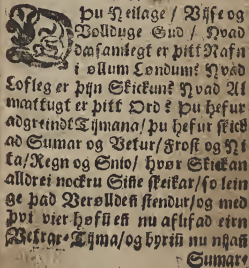 Þu Heilage / Vijse og
Vollduge Gud / Hvad
dasamlegt er þitt Nafn
i øllum Løndum? Hvad
Lofleg er þijn Skickun? Hvad Al
mattugt er þitt Ord? Þu hefur
adgreindt Tijmana / þu hefur skick
ad Sumar og Vetur / Frost og Hi
ta / Regn og Snio / hvør Skickan
alldrei nockru Siñe skeikar / so lein
ge pad Verølldeñ stendur / og med
þvi vier høfū eñ nu aflifad eirn
Vetrar-Tijma / og byriū nu nyañ
Sumar-